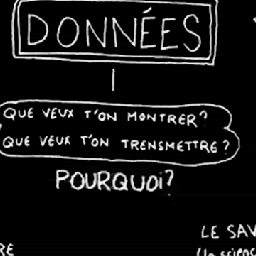 DONNÉES
QUE VEUX T'ON MONTRER?
QUE VEUX T'ON TRENSMETTRE?
POURQUOI?
LE SAV
RE